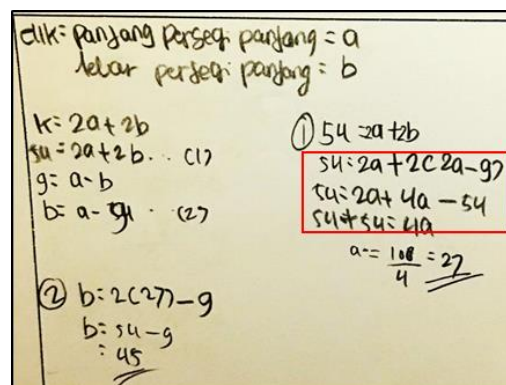 dik: panjang persegi panjang = a
lebar persegi panjang = b
k = 2a + 2b
54 = 2a + 2b . . (1)
9 = a - b
b = a - 9 . . (2)
② b = 2(27) - 9
b = 54 - 9
= 45
① 54 = 2a + 2b
54 = 2a + 2(2a - 9)
54 = 2a + 4a - 54
54 + 54 = 4a
a = 108/4 = 27